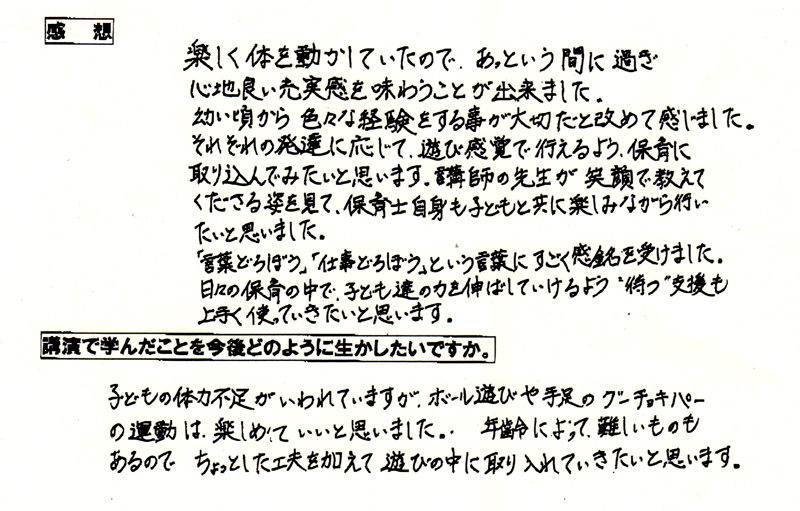 感 想
楽しく体を動かしていたので、あっという間に過ぎ
心地良い充実感を味わうことが出来ました。
幼い頃から色々な経験をする事が大切だと改めて感じました。
それぞれの発達に応じて、遊び感覚で行えるよう、保育に
取り込んでみたいと思います。講師の先生が笑顔で教えて
くださる姿を見て、保育士自身も子どもと共に楽しみながら行い
たいと思いました。
「言葉どろぼう」「仕事どろぼう」という言葉にすごく感銘を受けました。
日々の保育の中で、子ども達の力を伸ばしていけるよう“待つ”支援も
上手く使っていきたいと思います。
講演で学んだことを今後どのように生かしたいですか。
子どもの体力不足がいわれていますが、ボール遊びや手足のグーチョキパー
の運動は、楽しめていいと思いました。 年齢によって、難しいものも
あるので ちょっとした工夫を加えて遊びの中に取り入れていきたいと思います。